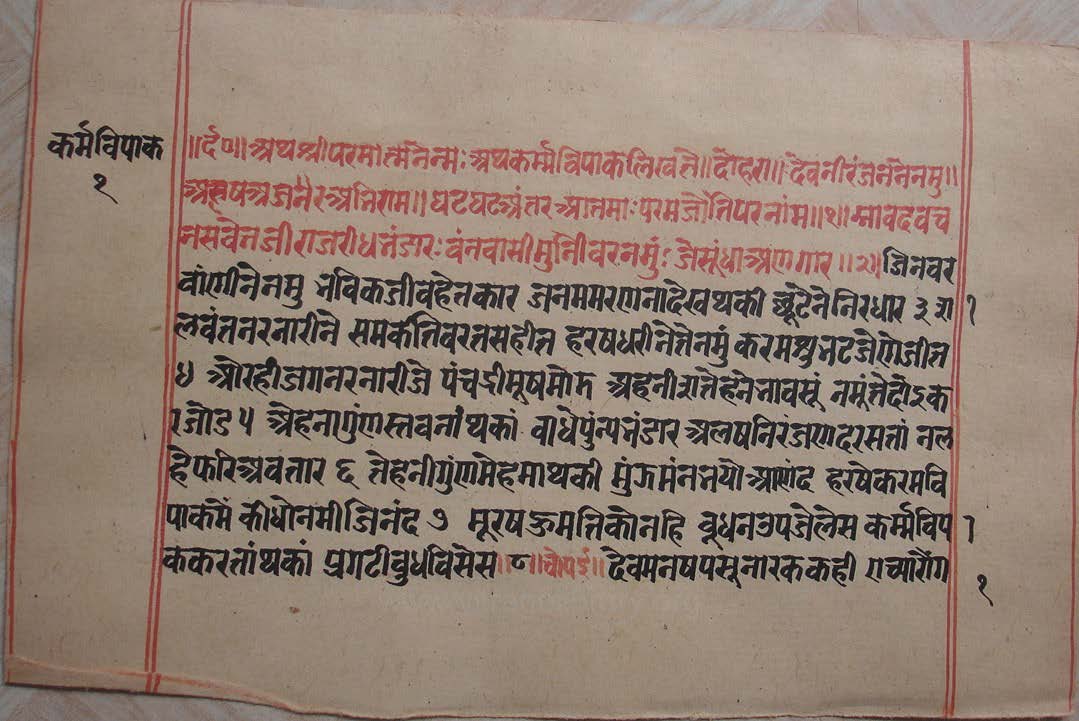 कर्मविपाक
१
॥र्द०॥ अथश्रीपरमात्मनेन्मः अथकर्म्मविपाकलिखते॥ दोहरा॥ देवनीरंजनेनेनमु॥
अलषअजनैरअभिराम॥ घटघटअंतरआतमाः परमजोतिपरनांम॥१॥
नसंवेतजीराजरीधभंडारः वंनवासीमुनीवरनमुंः जेसुंधाअणगार॥२॥ जिनवर
वांणीनेनमु भविकजीवहेतकार जनममरणनादेखथकी छूटेनेनिरधार ३ शी
लवंतनरनारीने समकेतिवरतसहीत हरषधरीनेतेनमुं करमशुभटजेणेजीत
४ औरहीजगनरनारीजे पंचद्रीमूषमोम अहनीशतेहनेभावसूं नमूंतेदोइक
रजोड ५ अेहनागुंणस्तवनांथकां वाधेपुंन्यभंडार अलषनिरंजणदरसतां नल
हेफरिअवतार ६ तेहनीगुंणमेहमाथकी मुंऊमंनभयौआणंद हरषेकरमवि
पाकमें कीधोनमीजिनंद ७ मूरषऊमतिकोनहि बूधनउपजेलेस कर्म्मविपा
ककरतांथकां प्रगटीबुधविसेस॥८॥चोपई॥ देवमनषपसूनारककही
१